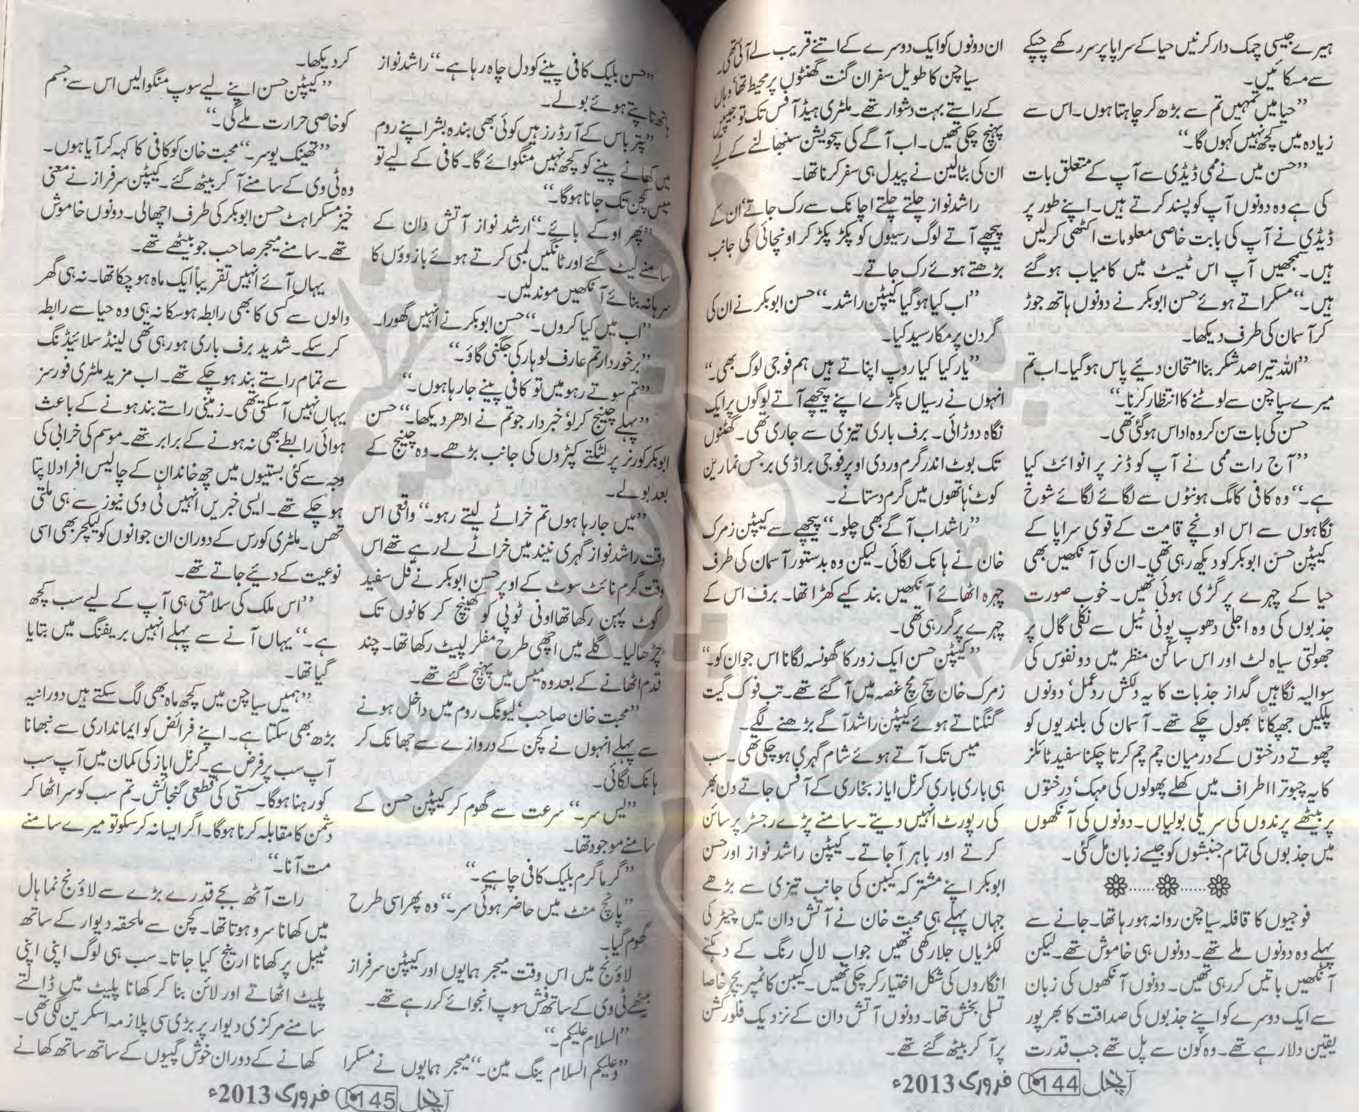 ہیرے جیسی چمک دار کرنیں حیا کے سراپا پر سر رکھے چپکے
سے مسکائیں۔
”حیا میں تمہیں تم سے بڑھ کر چاہتا ہوں۔ اس سے
زیادہ میں کچھ نہیں کہوں گا۔“
”حسن میں نے ممی ڈیڈی سے آپ کے متعلق بات
کی ہے وہ دونوں آپ کو پسند کرتے ہیں۔ اپنے طور پر
ڈیڈی نے آپ کی بابت خاصی معلومات اکٹھی کرلیں
ہیں۔ سمجھیں آپ اس ٹیسٹ میں کامیاب ہوگئے
ہیں۔“ مسکراتے ہوئے حسن ابوبکر نے دونوں ہاتھ جوڑ
کر آسمان کی طرف دیکھا۔
”اللہ تیرا صد شکر بنا امتحان دیئے پاس ہوگیا۔ اب تم
میرے سیاچن سے لوٹنے کا انتظار کرنا۔“
حسن کی بات سن کر وہ اداس ہوگئی تھی۔
”آج رات ممی نے آپ کو ڈنر پر انوائٹ کیا
ہے۔“ وہ کافی کا مگ ہونٹوں سے لگائے لگائے شوخ
نگاہوں سے اس اونچے قامت کے قوی سراپا کے
کیپٹن حسن ابوبکر کو دیکھ رہی تھی۔ ان کی آنکھیں بھی
حیا کے چہرے پر گڑی ہوئی تھیں۔ خوب صورت
جذبوں کی وہ اجلی دھوپ پونی ٹیل سے نکلی گال پر
جھولتی سیاہ لٹ اور اس ساکن منظر میں دو نفوس کی
سوالیہ نگاہیں گداز جذبات کا یہ دلکش ردعمل‘ دونوں
پلکیں جھپکانا بھول چکے تھے۔ آسمان کی بلندیوں کو
چھوتے درختوں کے درمیان چم چم کرتا چکنا سفید ٹائلز
کا یہ چبوترا اطراف میں کھلے پھولوں کی مہک‘ درختوں
پر بیٹھے پرندوں کی سریلی بولیاں۔ دونوں کی آنکھوں
میں جذبوں کی تمام جنبشوں کو جیسے زبان مل گئی۔
فوجیوں کا قافلہ سیاچن روانہ ہورہا تھا۔ جانے سے
پہلے وہ دونوں ملے تھے۔ دونوں ہی خاموش تھے۔ لیکن
آنکھیں باتیں کررہی تھیں۔ دونوں آنکھوں کی زبان
سے ایک دوسرے کو اپنے جذبوں کی صداقت کا بھرپور
یقین دلا رہے تھے۔ وہ کون سے پل تھے جب قدرت
ان دونوں کو ایک دوسرے کے اتنے قریب لے آئی تھی۔
سیاچن کا طویل سفر ان گنت گھنٹوں پر محیط تھا‘ وہاں
کے راستے بہت دشوار تھے۔ ملٹری ہیڈ آفس تک تو جیپیں
پہنچ چکی تھیں۔ اب آگے کی سچویشن سنبھالنے کے لیے
ان کی بٹالین نے پیدل ہی سفر کرنا تھا۔
راشد نواز چلتے چلتے اچانک سے رک جاتے‘ ان کے
پیچھے آتے لوگ رسیوں کو پکڑ پکڑ کر اونچائی کی جانب
بڑھتے ہوئے رک جاتے۔
”اب کیا ہوگیا کیپٹن راشد۔“ حسن ابوبکر نے ان کی
گردن پر مکا رسید کیا۔
”یار کیا کیا روپ اپناتے ہیں ہم فوجی لوگ بھی۔“
انہوں نے رسیاں پکڑے اپنے پیچھے آتے لوگوں پر ایک
نگاہ دوڑائی۔ برف باری تیزی سے جاری تھی۔ گھٹنوں
تک بوٹ اندر گرم وردی اوپر فوجی براڈی برجس نما رین
کوٹ‘ ہاتھوں میں گرم دستانے۔
”راشد اب آگے بھی چلو۔“ پیچھے سے کیپٹن زمرک
خان نے ہانک لگائی۔ لیکن وہ بدستور آسمان کی طرف
چہرہ اٹھائے آنکھیں بند کیے کھڑا تھا۔ برف اس کے
چہرے پر گر رہی تھی۔
”کیپٹن حسن ایک زور کا گھونسہ لگانا اس جوان کو۔“
زمرک خان سچ مچ غصہ میں آگئے تھے۔ تب فوک گیت
گنگناتے ہوئے کیپٹن راشد آگے بڑھنے لگے۔
میس تک آتے ہوئے شام گہری ہوچکی تھی۔ سب
ہی باری باری کرنل ایاز بخاری کے آفس جاتے دن بھر
کی رپورٹ انہیں دیتے۔ سامنے پڑے رجسٹر پر سائن
کرتے اور باہر آجاتے۔ کیپٹن راشد نواز اور حسن
ابوبکر اپنے مشترکہ کیبن کی جانب تیزی سے بڑھے
جہاں پہلے ہی محبت خان نے آتش دان میں چیڑ کی
لکڑیاں جلا رکھی تھیں جواب لال رنگ کے دہکتے
انگاروں کی شکل اختیار کرچکی تھیں۔ کیبن کا ٹمپریچر خاصا
تسلی بخش تھا۔ دونوں آتش دان کے نزدیک فلور کشن
پر آ کر بیٹھ گئے تھے۔
آنچل 144 فروری 2013ء
”حسن بلیک کافی پینے کو دل چاہ رہا ہے۔“ راشد نواز
ہاتھ تاپتے ہوئے بولے۔
”پتر باس کے آرڈرز ہیں کوئی بھی بندہ بشر اپنے روم
میں کھانے پینے کو کچھ نہیں منگوائے گا۔ کافی کے لیے تو
میس کچن تک جانا ہوگا۔“
”پھر اوکے بائے۔“ ارشد نواز آتش دان کے
سامنے لیٹ گئے اور ٹانگیں لمبی کرتے ہوئے بازوؤں کا
سرہانہ بنائے آنکھیں موند لیں۔
”اب میں کیا کروں۔“ حسن ابوبکر نے انہیں گھورا۔
”برخوردار تم عارف لوہار کی جگنی گاؤ۔“
”تم سوتے رہو میں تو کافی پینے جا رہا ہوں۔“
”پہلے چینج کرلو‘ خبردار جو تم نے ادھر دیکھا۔“ حسن
ابوبکر کورنر پر لٹکتے کپڑوں کی جانب بڑھے۔ وہ چینج کے
بعد بولے۔
”میں جا رہا ہوں تم خراٹے لیتے رہو۔“ واقعی اس
وقت راشد نواز گہری نیند میں خراٹے لے رہے تھے اس
وقت گرم نائٹ سوٹ کے اوپر حسن ابوبکر نے فل سفید
کوٹ پہن رکھا تھا اونی ٹوپی کو کھینچ کر کانوں تک
چڑھا لیا۔ گلے میں اچھی طرح مفلر لپیٹ رکھا تھا۔ چند
قدم اٹھانے کے بعد وہ میس میں پہنچ گئے تھے۔
”محبت خان صاحب‘ لیونگ روم میں داخل ہونے
سے پہلے انہوں نے کچن کے دروازے سے جھانک کر
ہانک لگائی۔
”یس سر۔“ سرعت سے گھوم کر کیپٹن حسن کے
سامنے موجود تھا۔
”گرما گرم بلیک کافی چاہیے۔“
”پانچ منٹ میں حاضر ہوئی سر۔“ وہ پھر اسی طرح
گھوم گیا۔
لاؤنج میں اس وقت میجر ہمایوں اور کیپٹن سرفراز
بیٹھے ٹی وی کے ساتھ فش سوپ انجوائے کررہے تھے۔
”السلام علیکم۔“
”وعلیکم السلام ینگ مین۔“ میجر ہمایوں نے مسکرا
کر دیکھا۔
”کیپٹن حسن اپنے لیے سوپ منگوا لیں اس سے جسم
کو خاصی حرارت ملے گی۔“
”تھینک یو سر۔“ محبت خان کو کافی کا کہہ کر آیا ہوں۔
وہ ٹی وی کے سامنے آ کر بیٹھ گئے۔ کیپٹن سرفراز نے معنی
خیز مسکراہٹ حسن ابوبکر کی طرف اچھالی۔ دونوں خاموش
تھے۔ سامنے میجر صاحب جو بیٹھے تھے۔
یہاں آئے انہیں تقریباً ایک ماہ ہوچکا تھا۔ نہ ہی گھر
والوں سے کسی کا بھی رابطہ ہوسکا نہ ہی وہ حیا سے رابطہ
کرسکے۔ شدید برف باری ہورہی تھی لینڈ سلائیڈنگ
سے تمام راستے بند ہوچکے تھے۔ اب مزید ملٹری فورسز
یہاں نہیں آسکتی تھی۔ زمینی راستے بند ہونے کے باعث
ہوائی رابطے بھی نہ ہونے کے برابر تھے۔ موسم کی خرابی کی
وجہ سے کئی بستیوں میں چھ خاندان کے چالیس افراد لاپتا
ہوچکے تھے۔ ایسی خبریں انہیں ٹی وی نیوز سے ہی ملتی
تھیں۔ ملٹری کورس کے دوران ان جوانوں کو لیکچر بھی اسی
نوعیت کے دیئے جاتے تھے۔
”اس ملک کی سلامتی ہی آپ کے لیے سب کچھ
ہے۔“ یہاں آنے سے پہلے انہیں بریفنگ میں بتایا
گیا تھا۔
”ہمیں سیاچن میں کچھ ماہ بھی لگ سکتے ہیں دورانیہ
بڑھ بھی سکتا ہے۔ اپنے فرائض کو ایمانداری سے نبھانا
آپ سب پر فرض ہے۔ کرنل ایاز کی کمان میں آپ سب
کو رہنا ہوگا۔ سستی کی قطعی گنجائش۔ تم سب کو سر اٹھا کر
دشمن کا مقابلہ کرنا ہوگا۔ اگر ایسا نہ کرسکو تو میرے سامنے
مت آنا۔“
رات آٹھ بجے قدرے بڑے سے لاؤنج نما ہال
میں کھانا سرو ہوتا تھا۔ کچن سے ملحقہ دیوار کے ساتھ
ٹیبل پر کھانا ارینج کیا جاتا۔ سب ہی لوگ اپنی اپنی
پلیٹ اٹھاتے اور لائن بنا کر کھانا پلیٹ میں ڈالتے
سامنے مرکزی دیوار پر بڑی سی پلازمہ اسکرین لگی تھی۔
کھانے کے دوران خوش گپیوں کے ساتھ ساتھ کھانے
آنچل 145 فروری 2013ء